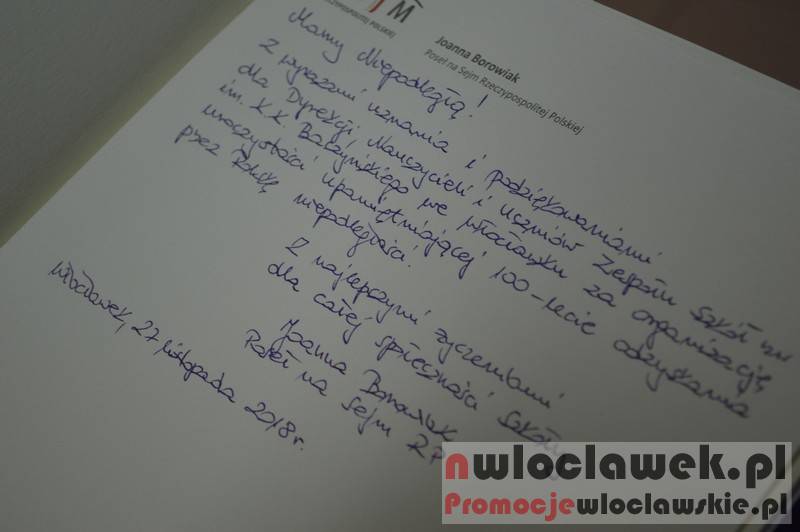 RZECZYPOSPOLITEJ POLSKIEJ
Joanna Borowiak
Poseł na Sejm Rzeczypospolitej Polskiej
Mamy Niepodległą!
Z wyrazami uznania i podziękowaniami
dla Dyrekcji, Nauczycieli i Uczniów Zespołu Szkół nr
im. K.K. Baczyńskiego we Włocławku za organizację
uroczystości upamiętniającej 100-lecie odzyskania
przez Polskę niepodległości.
Z najlepszymi życzeniami
dla całej społeczności szkolnej
Joanna Borowiak
Poseł na Sejm RP
Włocławek, 27 listopada 2018r.
nwloclawek.pl
Promocjewloclawskie.pl